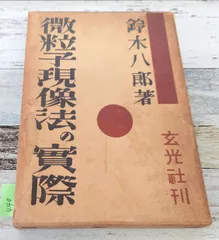 鈴木八郎著
微粒子現像法の實際
玄光社刊